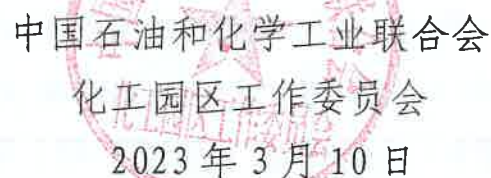 中国石油和化学工业联合会
化工园区工作委员会
2023年3月10日